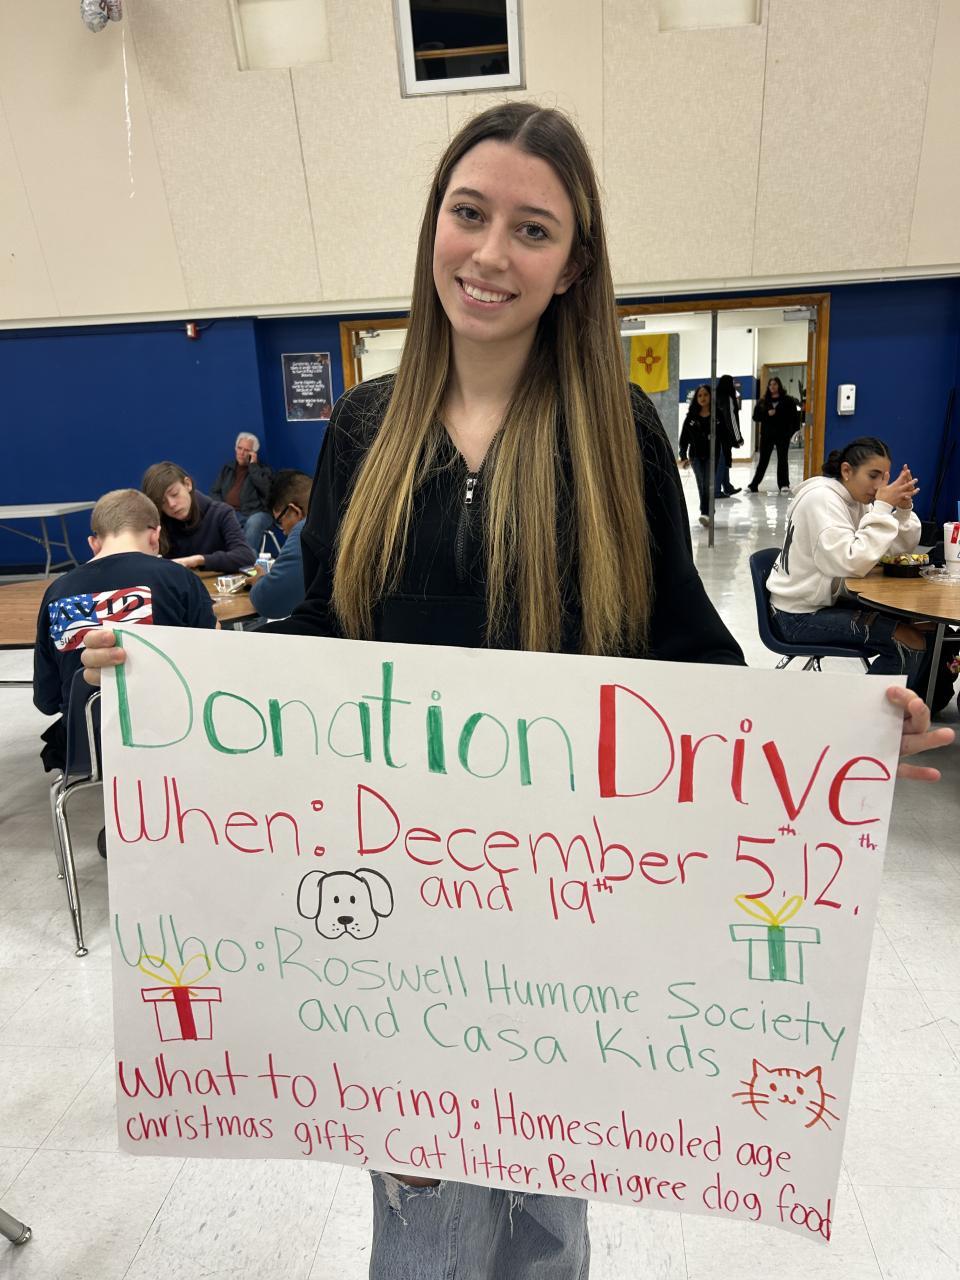 AVID
Donation Drive
When: December 5th, 12th,
and 19th
Who: Roswell Humane Society
and Casa Kids
What to bring: Homeschooled age
christmas gifts, Cat litter, Pedrigree dog food